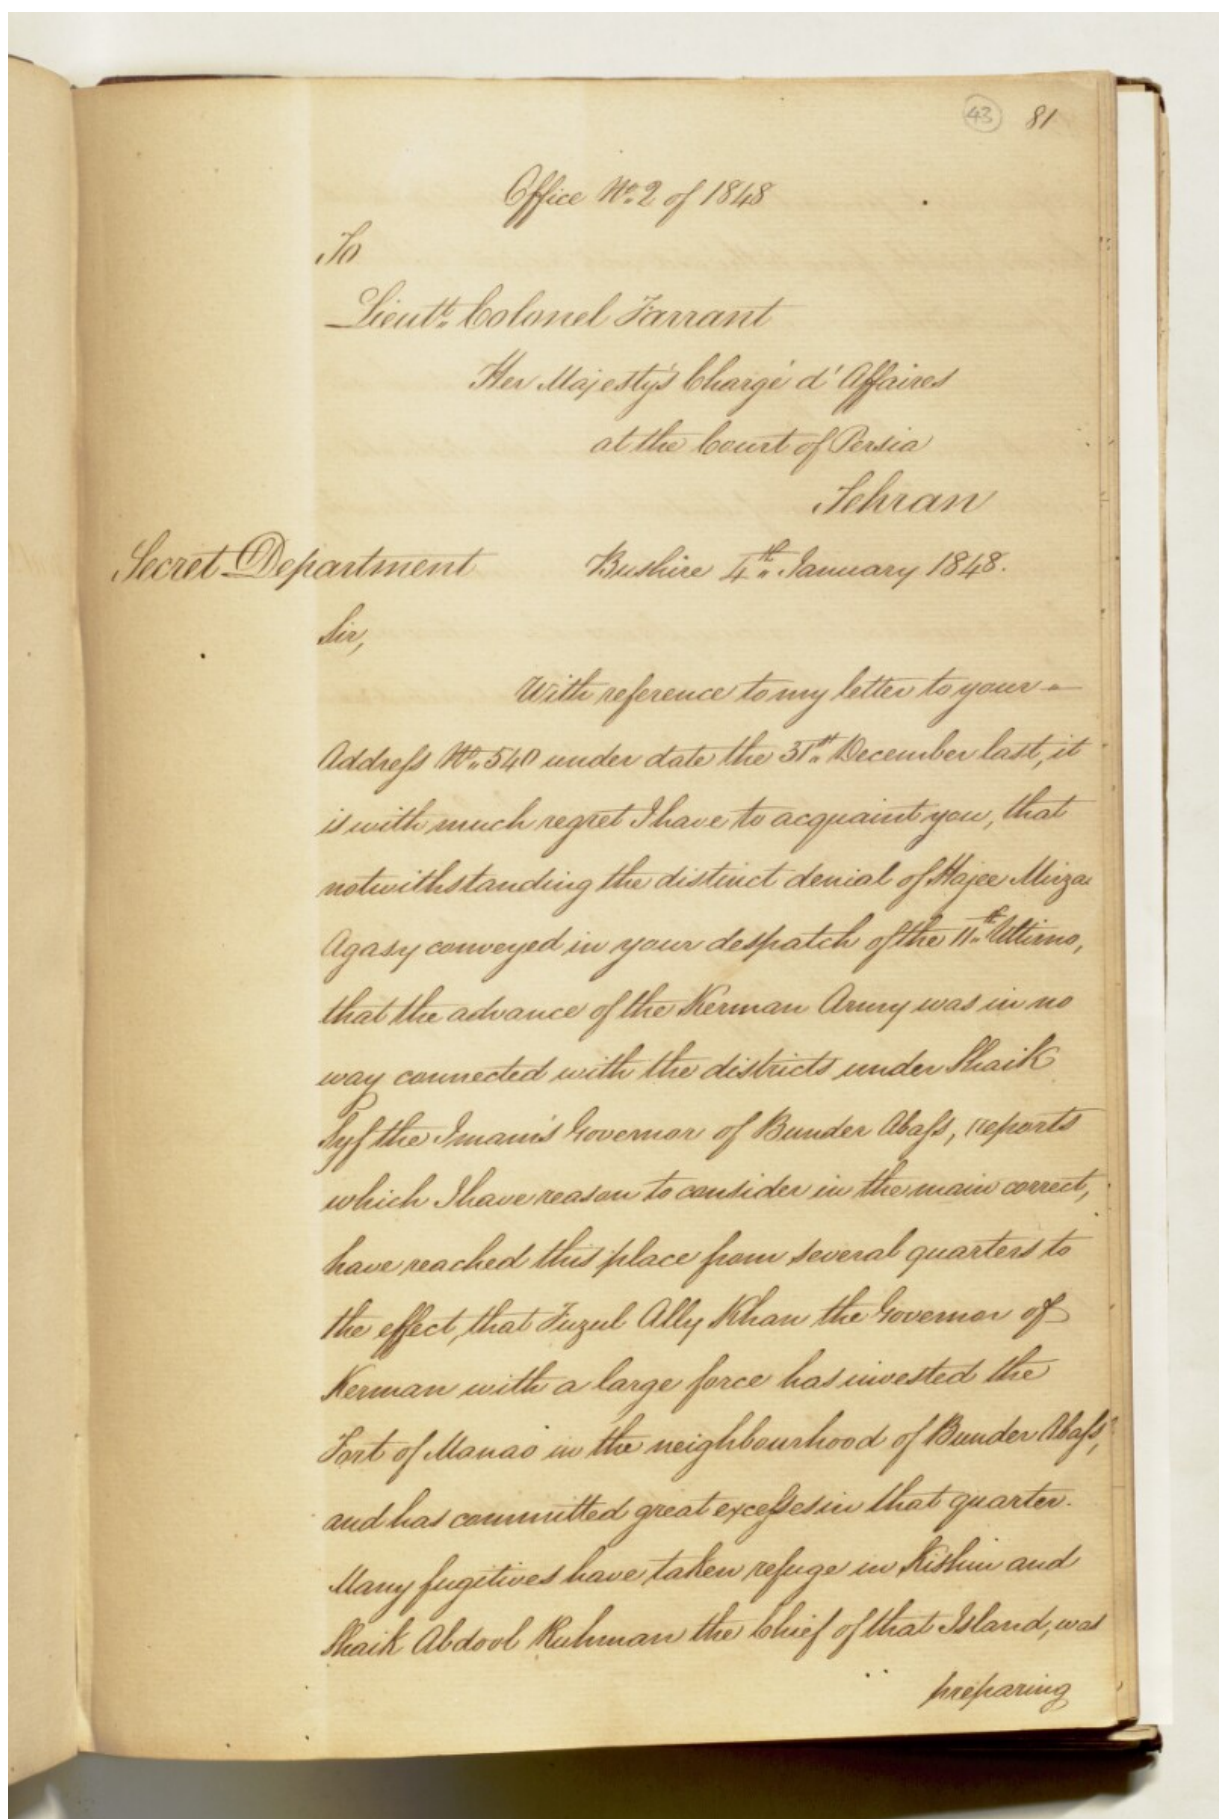 43 81
Office No. 2 of 1848
To
Lieutt. Colonel Farrant
Her Majesty's Chargé d'Affaires
at the Court of Persia
Tehran
Secret Department Bushire 4th. January 1848.
Sir,
With reference to my letter to your
Address No. 540 under date the 31st. December last, it
is with much regret I have to acquaint you, that
notwithstanding the distinct denial of Hajee Mirza
Agasy conveyed in your despatch of the 11th. Ultimo,
that the advance of the Kerman Army was in no
way connected with the districts under Shaik
Syf the Imam's Governor of Bunder Abass, reports
which I have reason to consider in the main correct,
have reached this place from several quarters to
the effect, that Fuzul Ally Khan the Governor of
Kerman with a large force has invested the
Fort of Manao in the neighbourhood of Bunder Abass,
and has committed great excesses in that quarter.
Many fugitives have taken refuge in Kishm and
Shaik Abdool Ruhman the Chief of that Island, was
preparing